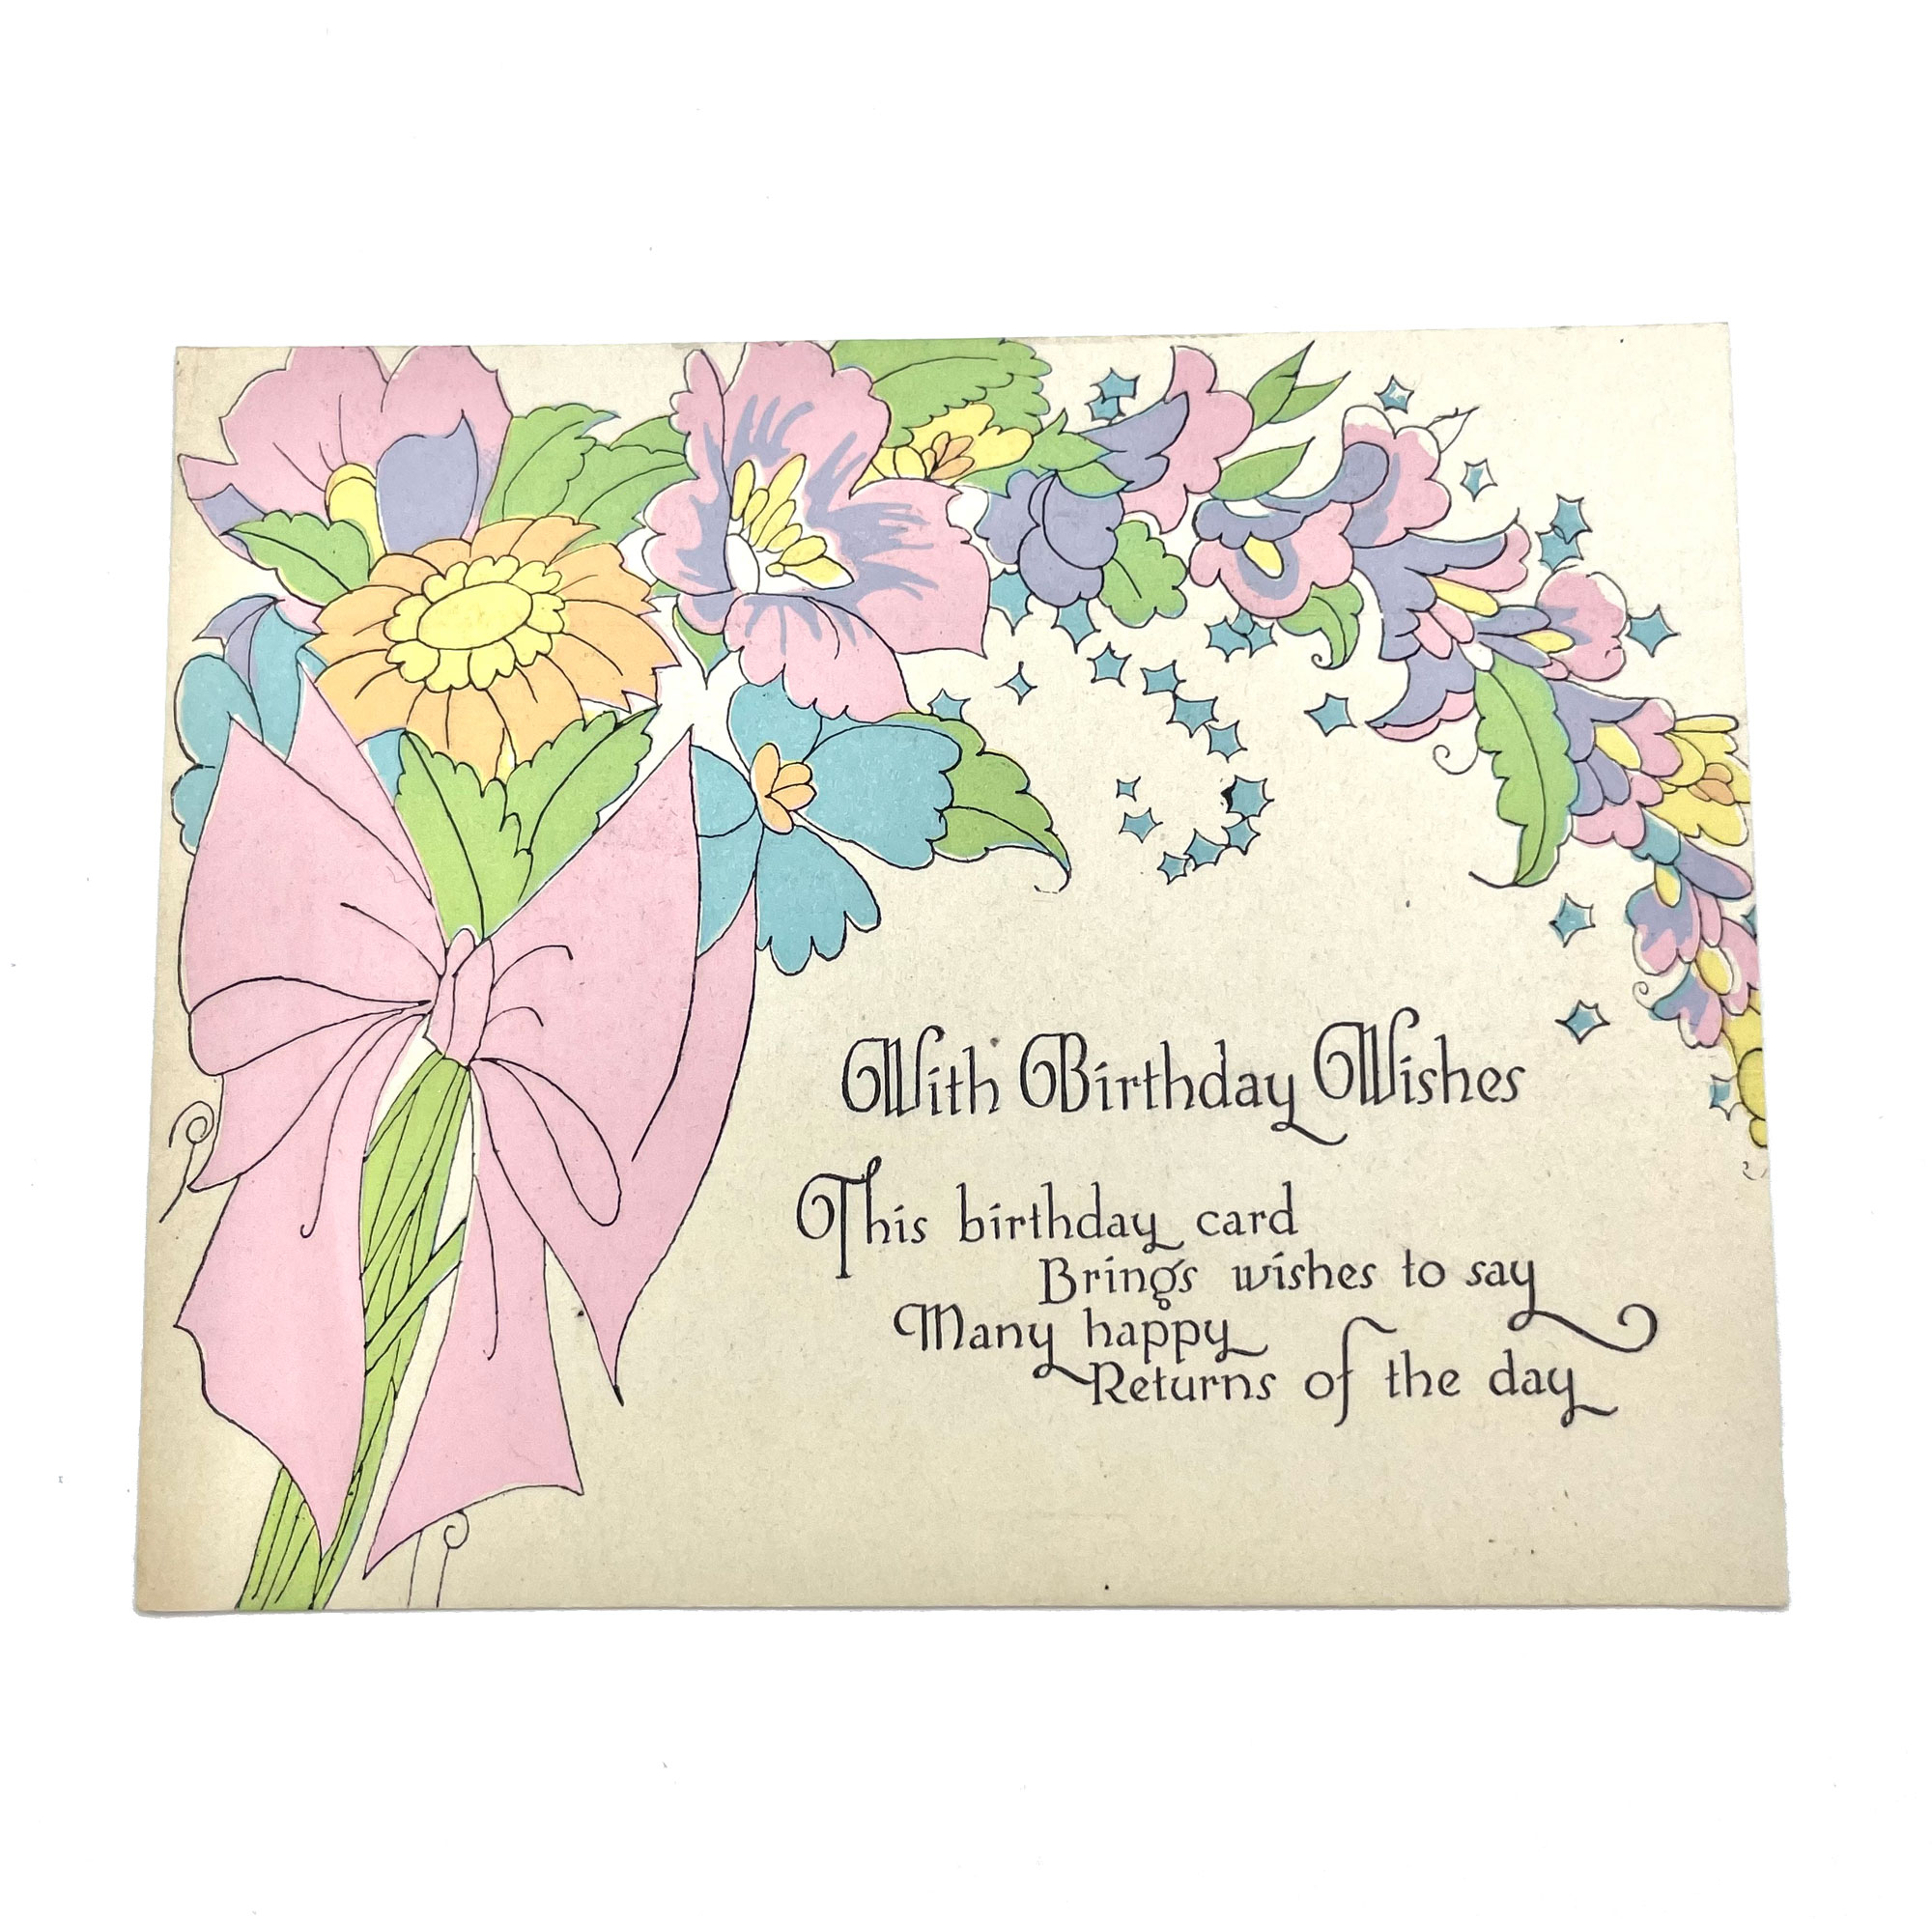 With Birthday Wishes
This birthday card
Brings wishes to say
Many happy
Returns of the day